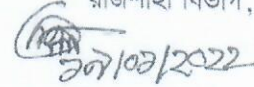 রাজশাহী বিভাগ,
১৭/০১/২০২২